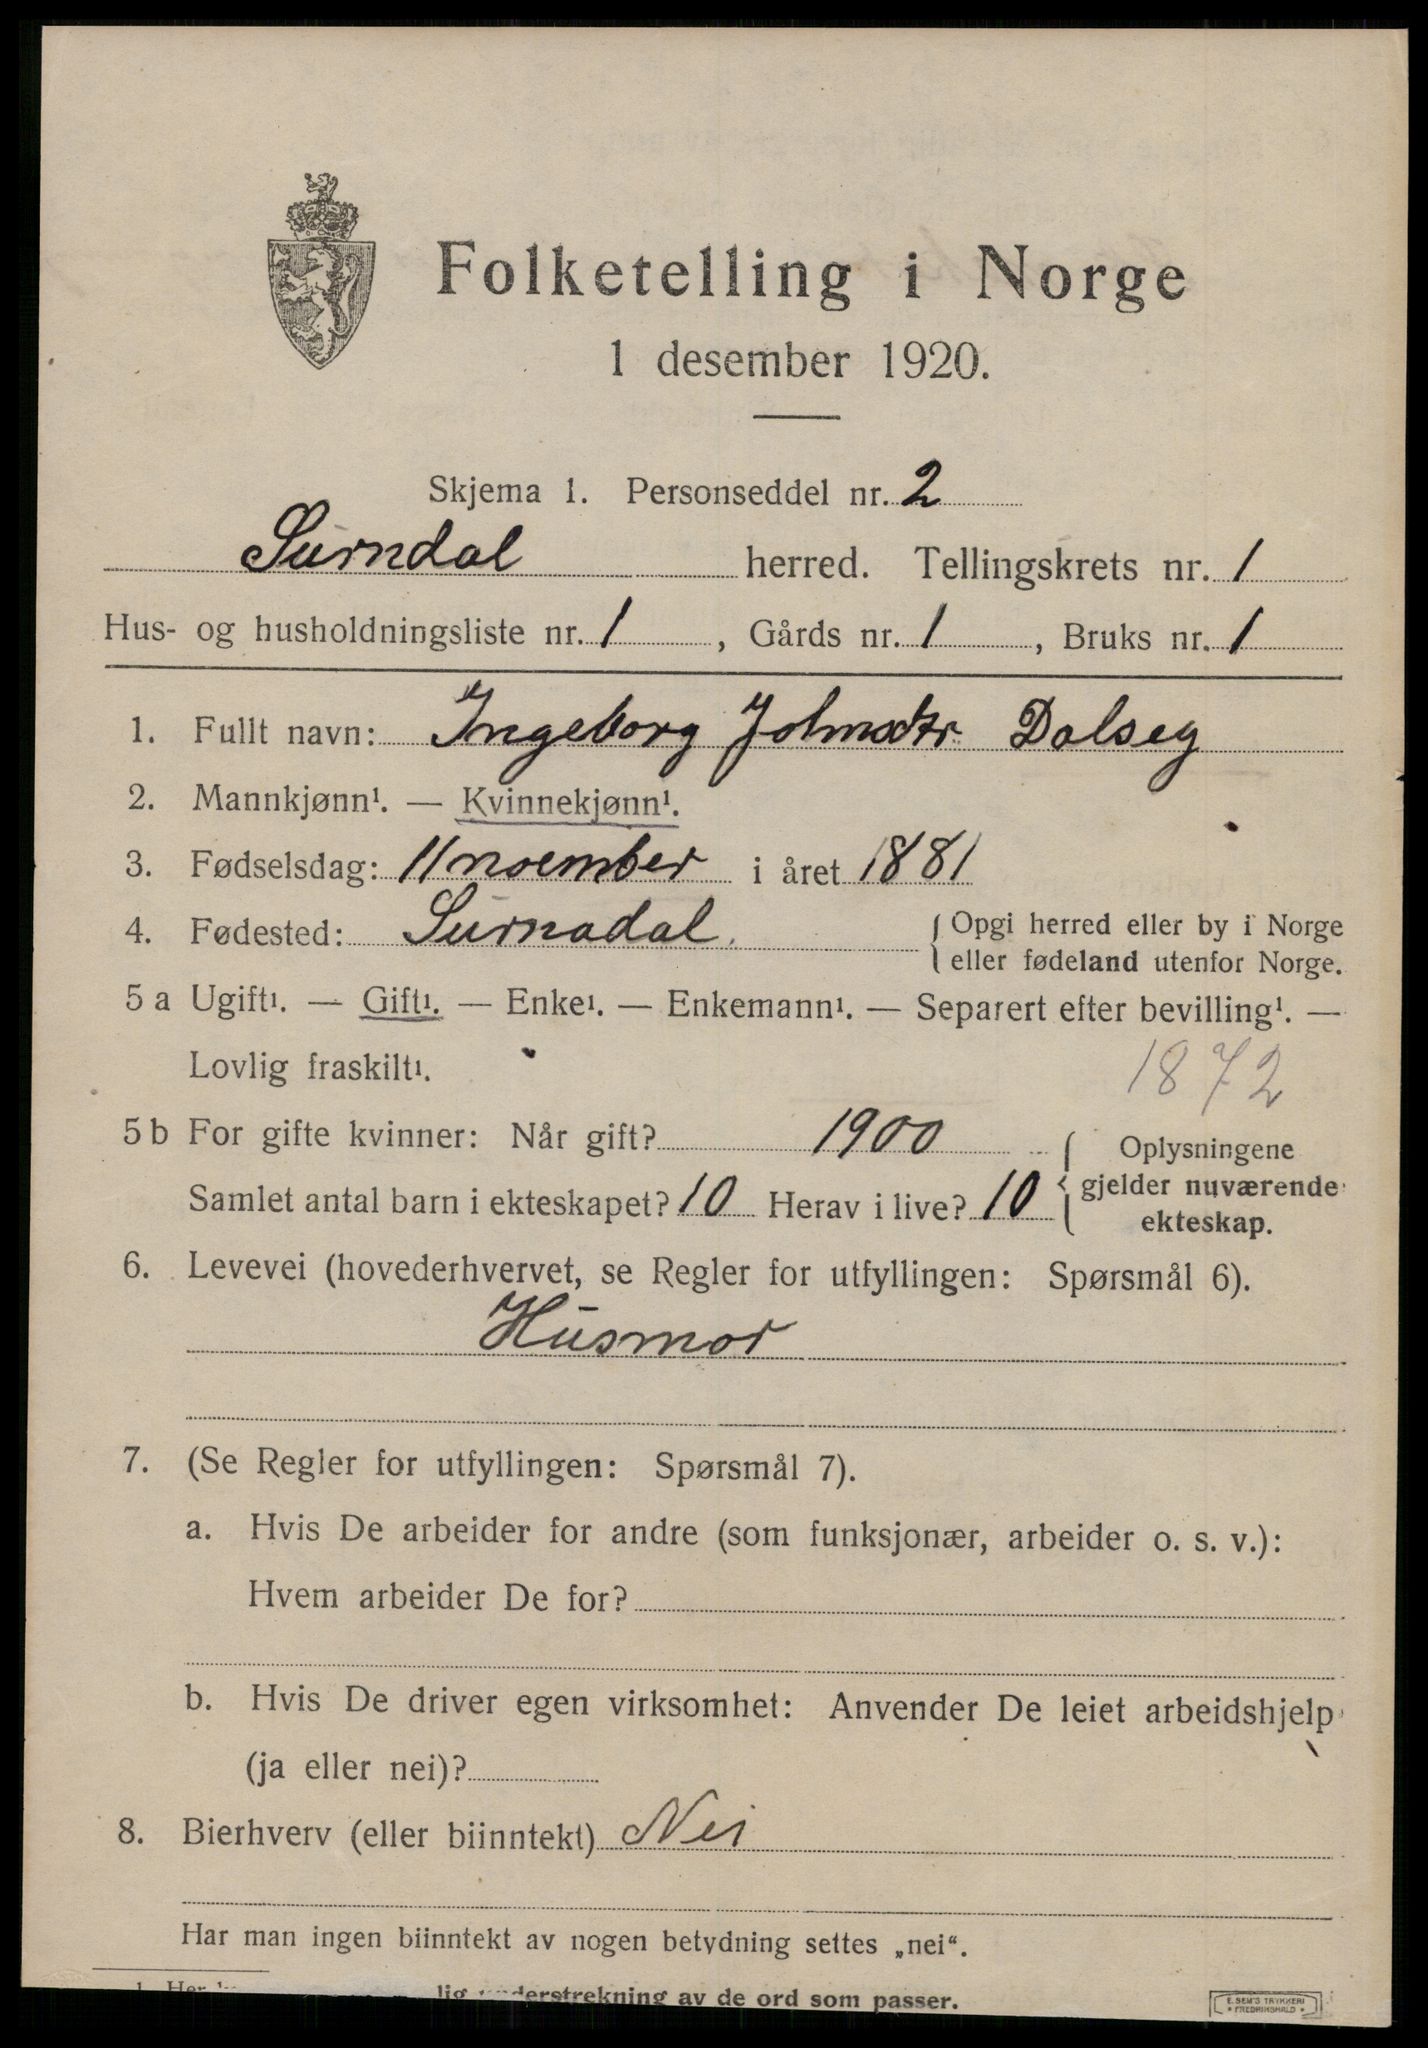 Folketelling i Norge
1 desember 1920.
Skjema 1. Personseddel nr. 2
Surndal herred. Tellingskrets nr. 1
Hus- og husholdningsliste nr. 1, Gårds nr. 1, Bruks nr. 1
1. Fullt navn: Ingeborg Johnsdtr Dalseg
2. Mannkjønn¹. — Kvinnekjønn¹.
3. Fødselsdag: 11 noember i året 1881
4. Fødested: Surnadal. { Opgi herred eller by i Norge
eller fødeland utenfor Norge.
5 a Ugift¹. — Gift¹. — Enke¹. — Enkemann¹. — Separert efter bevilling¹. —
Lovlig fraskilt¹.
1872
5 b For gifte kvinner: Når gift? 1900
Samlet antal barn i ekteskapet? 10 Herav i live? 10
{ Oplysningene
gjelder nuværende
ekteskap.
6. Levevei (hovederhvervet, se Regler for utfyllingen: Spørsmål 6).
Husmor
7. (Se Regler for utfyllingen: Spørsmål 7).
a. Hvis De arbeider for andre (som funksjonær, arbeider o. s. v.):
Hvem arbeider De for?
b. Hvis De driver egen virksomhet: Anvender De leiet arbeidshjelp
(ja eller nei)?
8. Bierhverv (eller biinntekt) Nei
Har man ingen biinntekt av nogen betydning settes „nei“.
1 Her understrekning av de ord som passer.
E. SEM'S TRYKKERI
FREDRIKSHALD